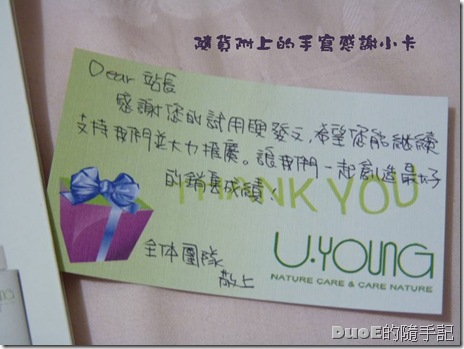 隨貨附上的手寫感謝小卡
Dear 站長
感謝您的試用與發文,希望您能繼續
支持我們並大力推廣。讓我們一起創造最好
的銷售成績!
THANK YOU
全体團隊
敬上
U·YOUNG
NATURE CARE & CARE NATURE
DuoE的隨手記